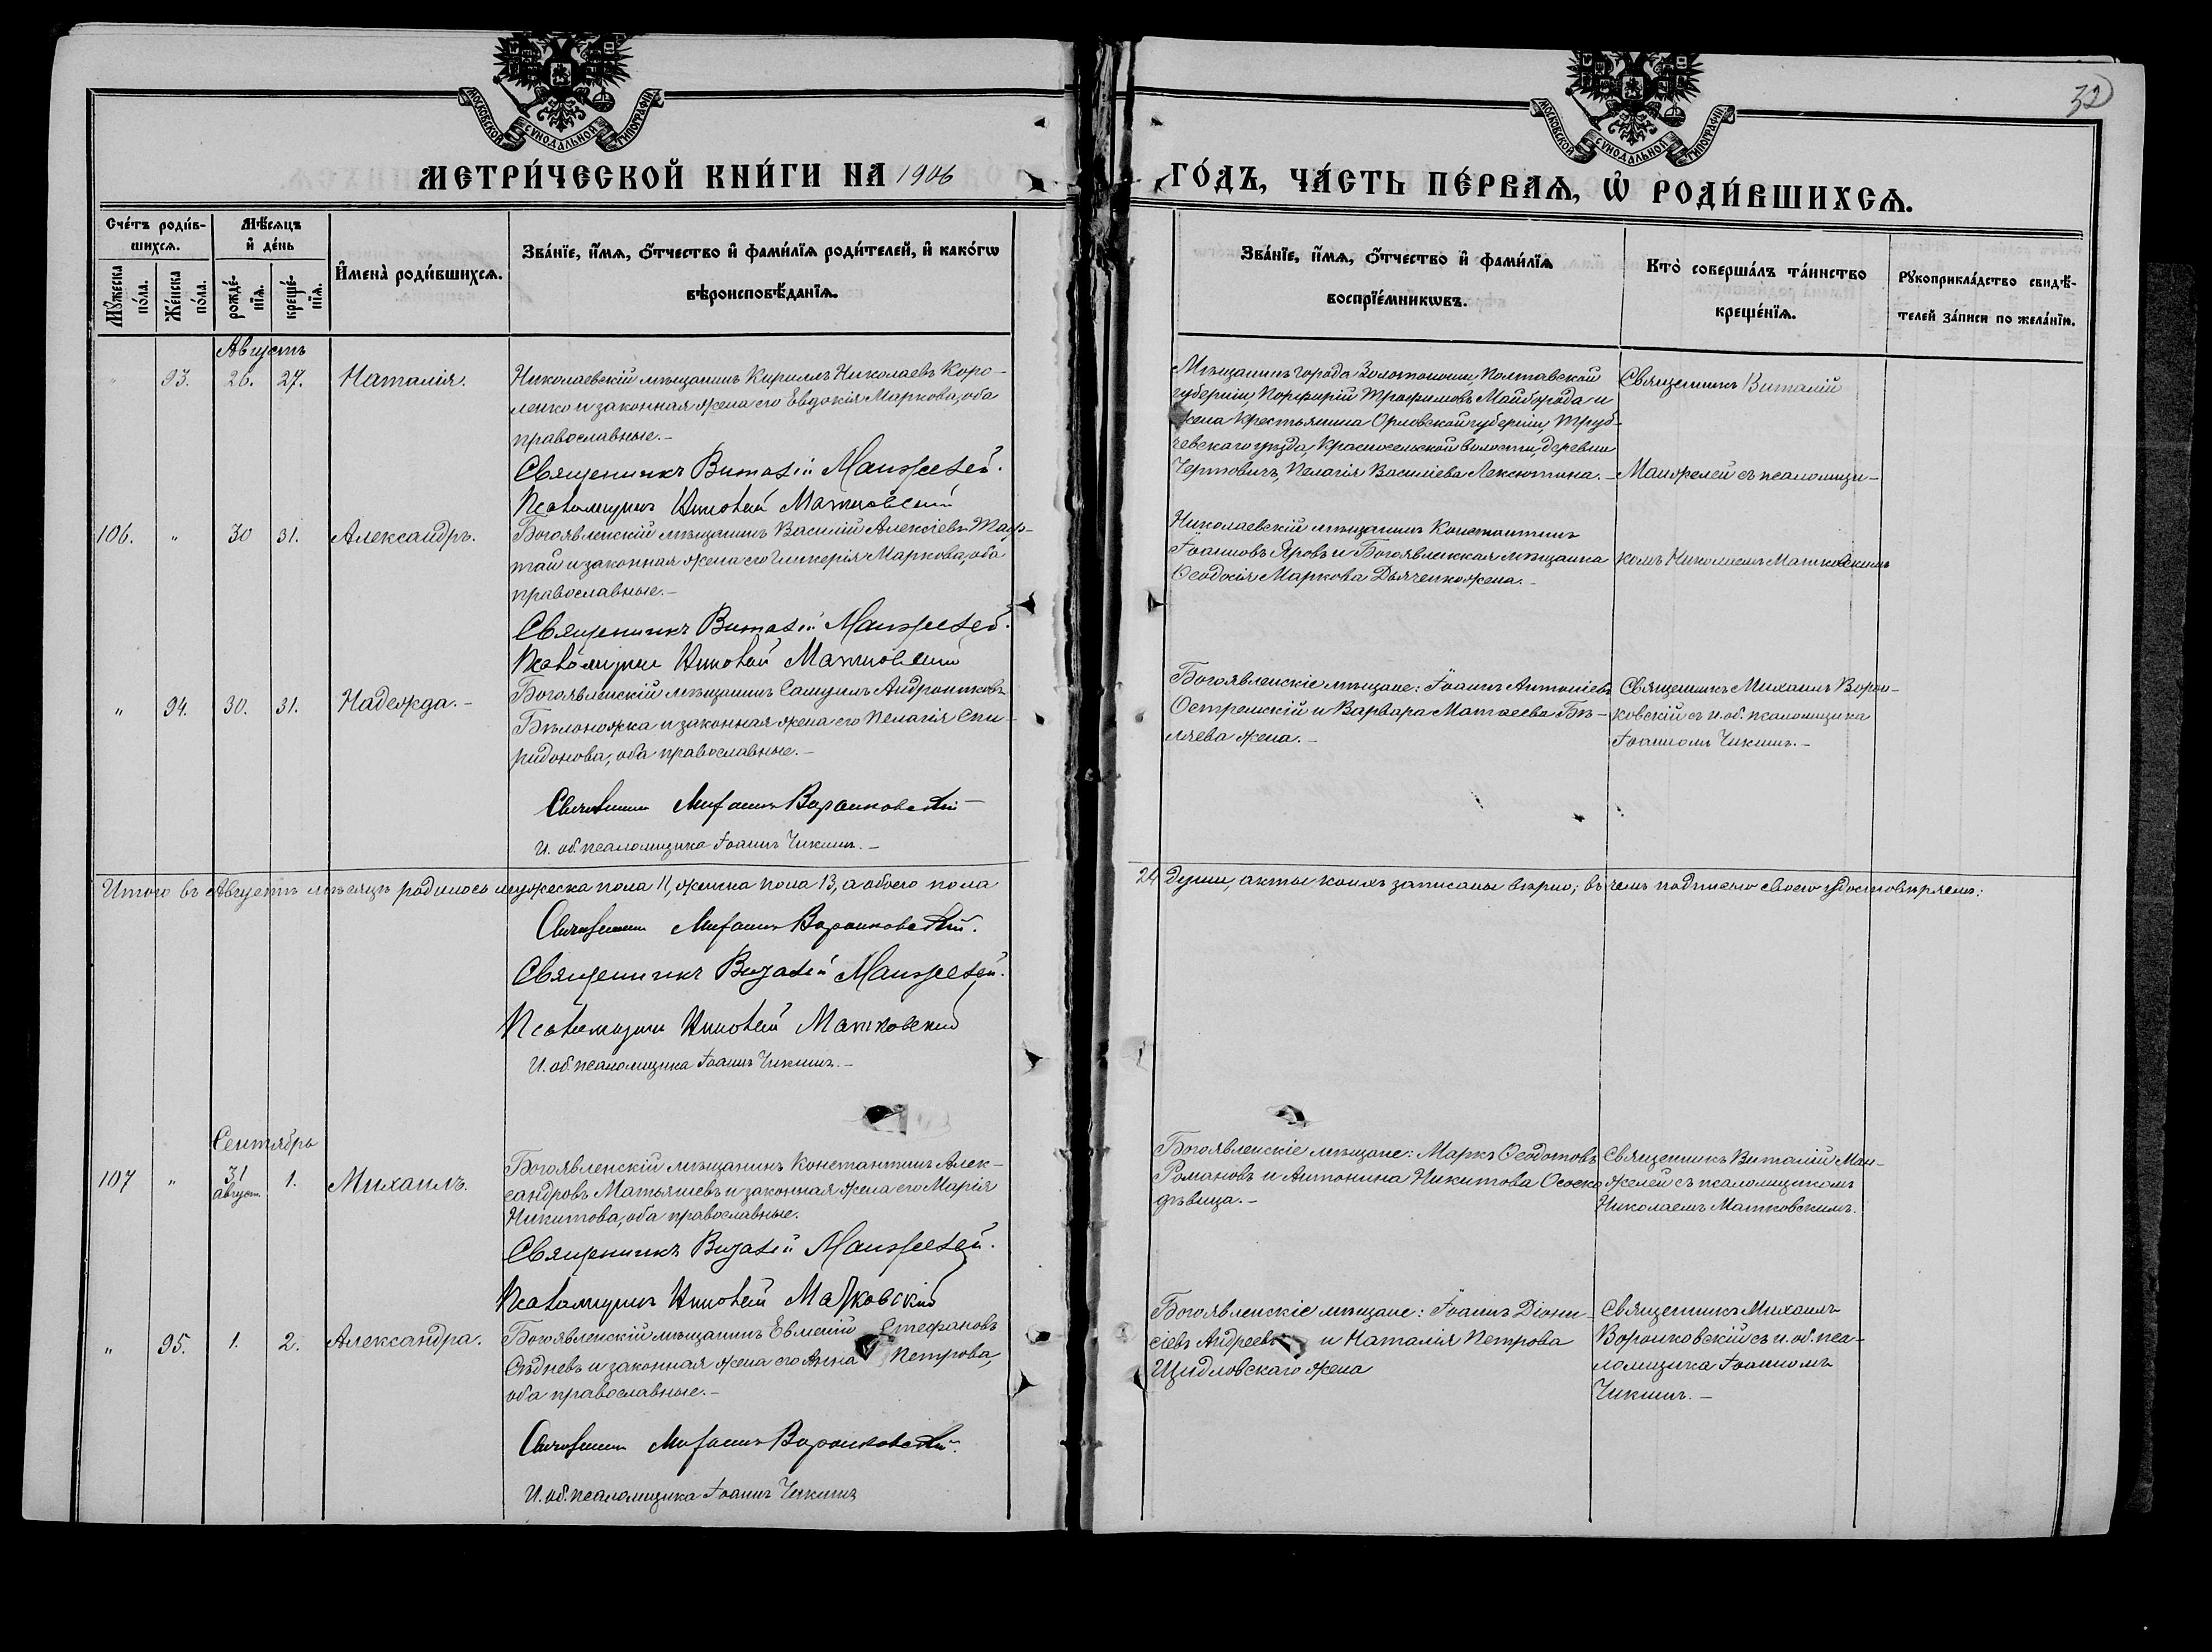 32
МОСКОВСКОЙ СѴНОДАЛЬНОЙ ТИПОГРАФІИ
МОСКОВСКОЙ СѴНОДАЛЬНОЙ ТИПОГРАФІИ
МЕТРИ́ЧЕСКОЙ КНИ́ГИ НА 1906
ГО́ДЪ, ЧА́СТЬ ПЕ́РВАЯ, Ѡ РОДИ́ВШИХСЯ.
Сче́тъ роди́в-
шихся.
Мꙋжеска
по́ла.
Же́нска
по́ла.
Мѣ́сяцъ
и де́нь
рожде́-
нїя.
креще́-
нїя.
Имена̀ роди́вшихся.
Зва́нїе, и́мя, о́тчество и фами́лїя роди́телей, и како́гѡ
вѣроисповѣ́данїя.
Зва́нїе, и́мя, о́тчество и фами́лїя
воспрїе́мникѡвъ.
Кто̀ соверша́лъ та́инство
креще́нїя.
Рꙋкоприкла́дство свидѣ́-
телей за́писи по жела́нїю.
Августъ
" 93. 26. 27. Наталія.
Николаевскій мѣщанинъ Кириллъ Николаевъ Коро-
ленко и законная жена его Евдокія Маркова, оба
православные.-
Священникъ Виталій Манжелей.
Псаломщикъ Николай Матковскій
Мѣщанинъ города Золотоноши, Полтавской
губерніи, Порфирій Трофимовъ Майборода и
жена крестьянина Орловской губерніи, Труб-
чевскаго уѣзда, Красносельской волости, деревни
Чертовичъ, Пелагія Василіева Алексютина.-
Священникъ Виталій
Манжелей съ псаломщи-
комъ Николаемъ Матковскимъ
106. " 30 31. Александръ.
Богоявленскій мѣщанинъ Василій Алексіевъ
и законная жена его Гликерія Маркова, оба
православные.-
Священникъ Виталій Манжелей.
Псаломщикъ Николай Матковскій
Николаевскій мѣщанинъ Константинъ
Іоанновъ Яровъ и Богоявленская мѣщанка
Ѳеодосія Маркова Дьяченко жена.-
" 94. 30. 31. Надежда.-
Богоявленскій мѣщанинъ Самуилъ Андрониковъ
Бѣлоножка и законная жена его Пелагія Спи-
ридонова, оба православные.-
Священникъ Михаилъ Воронковскій
И. об. псаломщика Іоаннъ Чикинъ.-
Богоявленскіе мѣщане: Іоаннъ Антоніевъ
Остремскій и Варвара Матѳеева Бѣ-
ляева жена.-
Священникъ Михаилъ Ворон-
ковскій съ и. об. псаломщика
Іоанномъ Чикинъ.-
Итого въ Августѣ мѣсяцѣ родилось мужеска пола 11, женска пола 13, а обоего пола
24 души, акты коихъ записаны вѣрно; въ чемъ подписью своею удостовѣряемъ:
Священникъ Михаилъ Воронковскій.
Священникъ Виталій Манжелей.
Псаломщикъ Николай Матковскій
И. об. псаломщика Іоаннъ Чикинъ.-
Сентябрь
107 " 31 август. 1. Михаилъ.
Богоявленскій мѣщанинъ Константинъ Алек-
сандровъ Матьяшевъ и законная жена его Марія
Никитова, оба православные.
Священникъ Виталій Манжелей.
Псаломщикъ Николай Матковскій
Богоявленскіе мѣщане: Маркъ Ѳеодотовъ
Романовъ и Антонина Никитова
дѣвица.-
Священникъ Виталій Ман-
желей съ псаломщикомъ
Николаемъ Матковскимъ.
" 95. 1. 2. Александра.
Богоявленскій мѣщанинъ Евмений Стефановъ
Сѣдневъ и законная жена его Анна Петрова,
оба православные.-
Священникъ Михаилъ Воронковскій.
И. об. псаломщика Іоаннъ Чикинъ
Богоявленскіе мѣщане: Іоаннъ Діони-
сіевъ Андреевъ и Наталія Петрова
Щидловскаго жена
Священникъ Михаилъ
Воронковскій съ и. об. пса-
ломщика Іоанномъ
Чикинъ.-